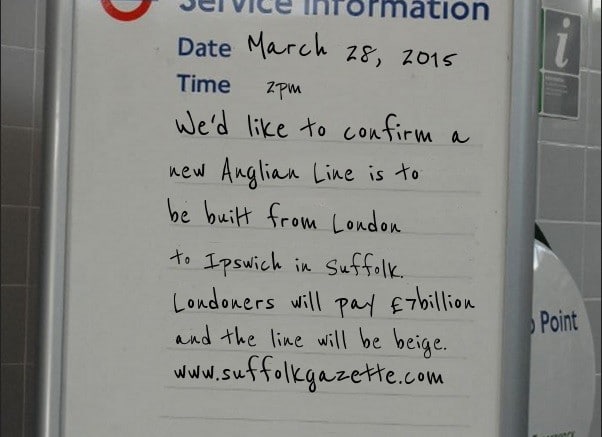 Service Information
Date March 28, 2015
Time 2pm
We'd like to confirm a
new Anglian Line is to
be built from London
to Ipswich in Suffolk.
Londoners will pay £7billion
and the line will be beige.
www.suffolkgazette.com
i
Point